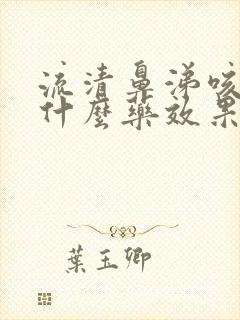 流清鼻涕咳
什麼藥效果
葉玉卿